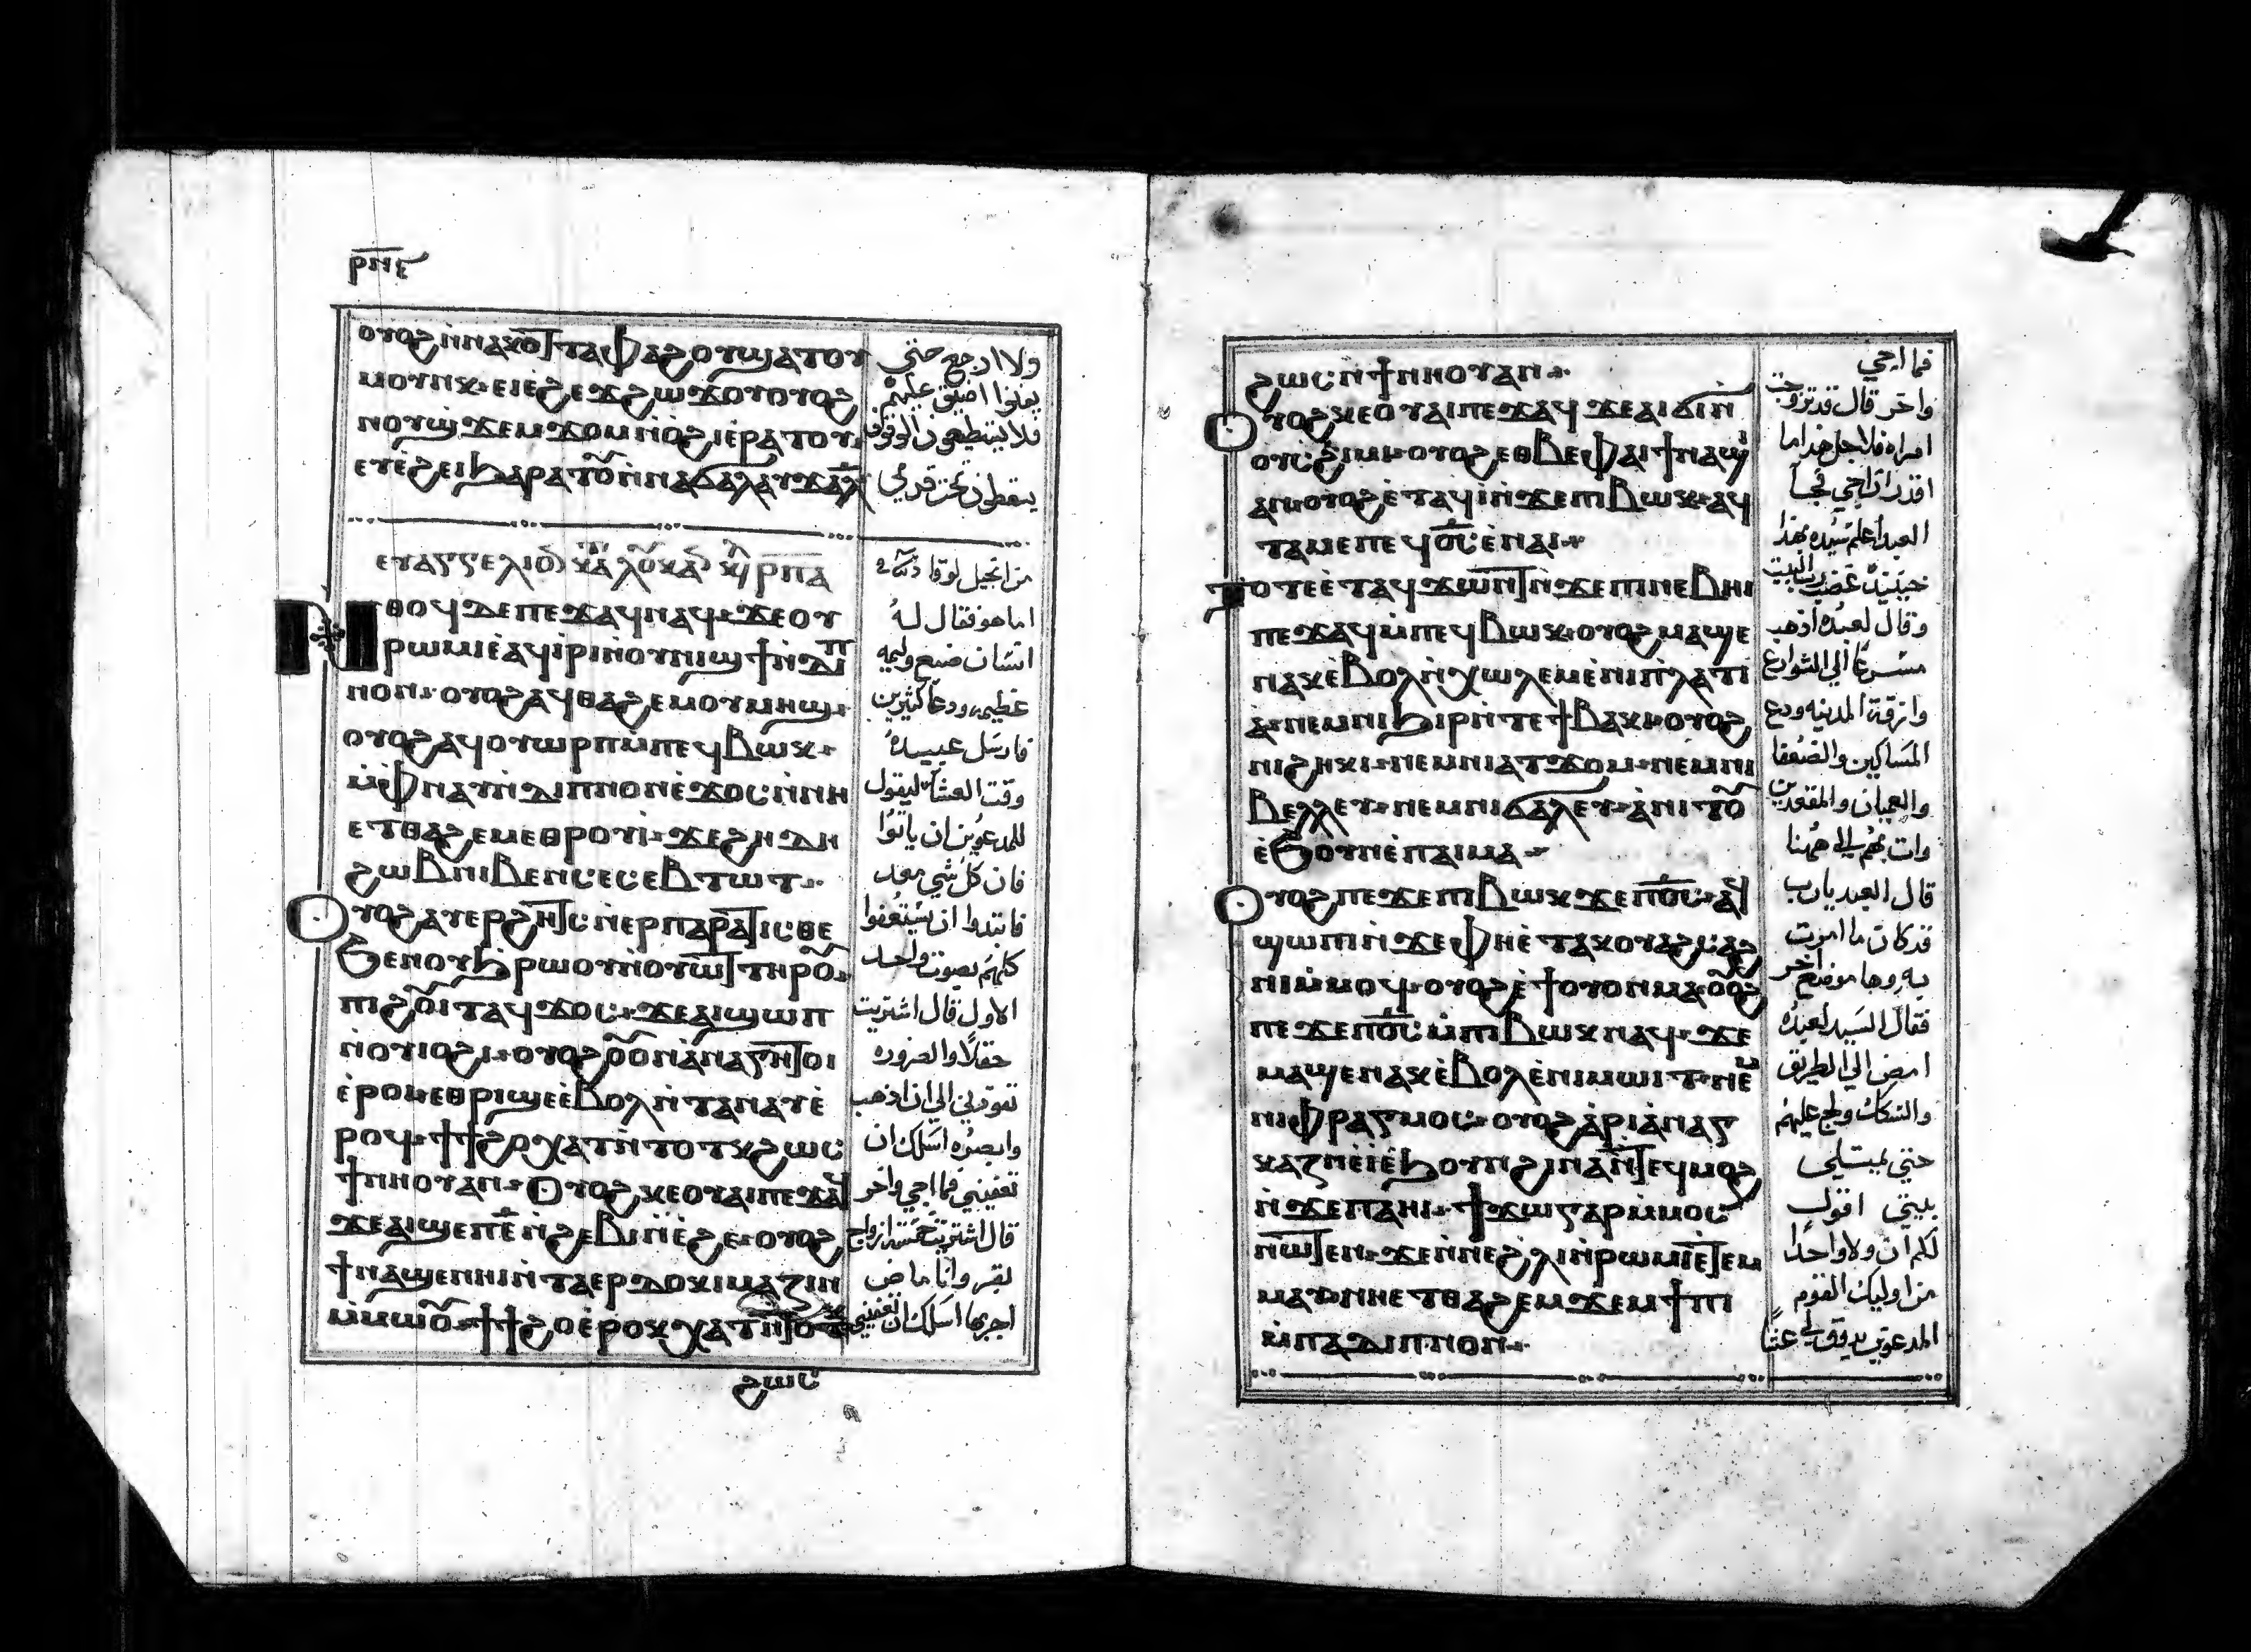 ⲣⲛⲉ
ⲟⲩⲟϩ ⲛ̀ⲛⲁⲕⲟⲧ ϯⲧⲁⲫⲁϩⲟⲩ ϣⲁⲧⲟⲩ
ⲙⲟⲩⲛⲕ · ⲉⲓⲉ̀ϩⲉϫϩⲱϫⲟⲩ ⲟⲩⲟϩ
ⲛⲟⲩϣϫⲉⲙϫⲟⲙ ⲛ̀ⲟ̀ϩⲓ ⲉ̀ⲣⲁⲧⲟⲩ ·
ⲉⲩⲉ̀ϩⲉⲓ ϧⲁⲣⲁⲧⲟⲩ ⲛ̀ⲛⲁϭⲁⲗⲁⲩϫ
ⲉⲩⲁⲅⲅⲉⲗⲓⲟⲛ ⲕⲁⲧⲁ ⲗⲟⲩⲕⲁⲛ ⲕⲉⲫ ⲣⲡⲁ
ⲛ̀ⲑⲟϥ ⲇⲉ ⲡⲉϫⲁϥ ⲛⲁϥ · ϫⲉ ⲟⲩ
ⲣⲱⲙⲓ ⲉ̀ⲁϥⲓ̀ⲣⲓ ⲛ̀ⲟⲩⲛⲓϣϯ ⲛ̀ⲇⲓⲡ
ⲛⲟⲛ · ⲟⲩⲟϩ ⲁϥⲑⲁϩⲉⲙ ⲟⲩⲙⲏϣ ·
ⲟⲩⲟϩ ⲁϥⲟⲩⲱⲣⲡ ⲙ̀ⲡⲉϥⲃⲱⲕ ·
ⲙ̀ⲫⲛⲁⲩ ⲙ̀ⲡⲓⲇⲓⲡⲛⲟⲛ ⲉ̀ϫⲟⲥ ⲛ̀ⲛⲏ
ⲉⲧⲑⲁϩⲉⲙ ⲉⲑⲣⲟⲩⲓ̀ · ϫⲉ ϩⲏⲇⲏ
ϩⲱⲃ ⲛⲓⲃⲉⲛ ⲥⲉⲥⲉⲃⲧⲱⲧ ·
ⲟⲩⲟϩ ⲁⲩⲉⲣϩⲏⲧⲥ ⲛ̀ⲉⲣⲡⲁⲣⲁⲧⲓⲥⲑⲉ
ϧⲉⲛ ⲟⲩϧⲣⲱⲟⲩ ⲛ̀ⲟⲩⲱⲧ ⲧⲏⲣⲟⲩ ·
ⲡⲓϩⲟⲩⲓⲧ ⲁϥϫⲟⲥ · ϫⲉ ⲁⲓϣⲱⲡ
ⲛ̀ⲟⲩⲓⲟϩⲓ · ⲟⲩⲟϩ ⲟⲩⲟⲛ ⲁ̀ⲛⲁⲅⲕⲏ ⲧⲟⲓ
ⲉ̀ⲣⲟⲓ ⲉⲑⲣⲓϣⲉ ⲉ̀ⲃⲟⲗ ⲛ̀ⲧⲁⲛⲁⲩ ⲉ̀
ⲣⲟϥ · ϯϯϩⲟ ⲭⲁⲧ ⲛ̀ⲧⲟⲧⲕ ϩⲱⲥ
ϯⲛⲛⲟⲩ ⲁⲛ · ⲟⲩⲟϩ ⲕⲉⲟⲩⲁⲓ ⲡⲉϫⲁϥ
ϫⲉ ⲁⲓϣⲉⲡ ⲉ̅ ⲛ̀ϩⲉⲃⲓ ⲛ̀ⲉ̀ϩⲉ · ⲟⲩⲟϩ
ϯⲛⲁϣⲉⲛⲏⲓ ⲛ̀ⲧⲁⲉⲣⲇⲟⲕⲓⲙⲁⲍⲓⲛ
ⲙ̀ⲙⲱⲟⲩ · ϯϯϩⲟ ⲉ̀ⲣⲟⲕ ⲭⲁⲧ ⲛ̀ⲧⲟⲧⲕ
ϩⲱⲥ
ولا ارجع حتى
يفنوا اضيق عليهم
فلا يستطيعون الوقوف
يسقطون تحت قدمي
من انجيل لوقا
اما هو فقال له
انسان صنع وليمه
عظيمه ودعا كثيرين
فارسل عبيده
وقت العشا ليقول
للمدعوين ان ياتوا
فان كل شي معد
فابتدوا ان يستعفوا
كلهم بصوت واحد
الاول قال اشتريت
حقلا والضروره
تقودني الي ان اذهب
وابصره اسلك ان
تعفيني فما اجي واخر
قال اشتريت خمسة ازواج
بقر وانا ماض
اجربها اسلك ان تعفيني
ϩⲱⲥ ⲛ̀ϯⲛⲛⲟⲩ ⲁⲛ ·
ⲟⲩⲟϩ ⲕⲉⲟⲩⲁⲓ ⲡⲉϫⲁϥ ϫⲉ ⲁⲓϭⲓ ⲛ̀
ⲟⲩⲥϩⲓⲙⲓ · ⲟⲩⲟϩ ⲉⲑⲃⲉ ⲫⲁⲓ ϯⲛⲁϣⲓ̀
ⲁⲛ · ⲟⲩⲟϩ ⲉ̀ⲧⲁϥⲓ̀ ⲛ̀ϫⲉ ⲡⲓⲃⲱⲕ · ⲁϥ
ⲧⲁⲙⲉ ⲡⲉϥⲟ̅ⲥ̅ ⲉ̀ⲛⲁⲓ ·
ⲧⲟⲧⲉ ⲉ̀ⲧⲁϥϫⲱⲛⲧ ⲛ̀ϫⲉ ⲡⲓⲛⲉⲃⲏⲓ
ⲡⲉϫⲁϥ ⲙ̀ⲡⲉϥⲃⲱⲕ · ⲟⲩⲟϩ ⲙⲁϣⲉ
ⲛⲁⲕ ⲉ̀ⲃⲟⲗ ⲛ̀ⲭⲱⲗⲉⲙ ⲉ̀ⲛⲓⲡⲗⲁⲧⲓ
ⲁ̀ · ⲛⲉⲙ ⲛⲓϧⲓⲣ ⲛ̀ⲧⲉ ϯⲃⲁⲕⲓ · ⲟⲩⲟϩ
ⲛⲓϩⲏⲕⲓ · ⲛⲉⲙ ⲛⲓⲁⲧϫⲟⲙ · ⲛⲉⲙ ⲛⲓ
ⲃⲉⲗⲗⲉⲩ · ⲛⲉⲙ ⲛⲓϭⲁⲗⲉⲩ · ⲁ̀ⲛⲓⲧⲟⲩ
ⲉ̀ϧⲟⲩⲛ ⲉ̀ⲡⲁⲓⲙⲁ ·
ⲟⲩⲟϩ ⲡⲉϫⲉ ⲡⲓⲃⲱⲕ ϫⲉ ⲡⲟ̅ⲥ̅ · ⲁϥ
ϣⲱⲡⲓ ⲛ̀ϫⲉ ⲫⲏⲉ̀ⲧⲁⲕⲟⲩⲁϩⲥⲁϩ
ⲛⲓ ⲙ̀ⲙⲟϥ · ⲟⲩⲟϩ ⲉ̀ϯ ⲟⲩⲟⲛ ⲙⲁ · ⲟⲩⲟϩ
ⲡⲉϫⲉ ⲡⲟ̅ⲥ̅ ⲙ̀ⲡⲓⲃⲱⲕ ⲛⲁϥ · ϫⲉ
ⲙⲁϣⲉⲛⲁⲕ ⲉ̀ⲃⲟⲗ ⲉ̀ⲛⲓⲙⲱⲓⲧ · ⲛⲉⲙ
ⲛⲓⲫⲣⲁⲅⲙⲟⲥ · ⲟⲩⲟϩ ⲁ̀ⲣⲓⲁ̀ⲛⲁⲅ
ⲕⲁⲍⲓⲛ ⲉ̀ⲓ̀ ⲉ̀ϧⲟⲩⲛ ϩⲓⲛⲁ ⲛ̀ⲧⲉϥⲙⲟϩ
ⲛ̀ϫⲉ ⲡⲁⲏⲓ · ϯϫⲱ ⲅⲁⲣ ⲙ̀ⲙⲟⲥ
ⲛⲱⲧⲉⲛ · ϫⲉ ⲛ̀ⲛⲉϩⲗⲓ ⲛ̀ⲣⲱⲙⲓ ⲛ̀ⲧⲉ
ⲛⲏⲉⲧⲑⲁϩⲉⲙ ϫⲉⲙϯⲡⲓ
ⲙ̀ⲡⲁⲇⲓⲡⲛⲟⲛ ·
فما اجي
واخر قال قد تزوجت
امراه فلاجل هذا ما
اقدر ان اجي فجا
العبد اعلم سيده بهذا
حينيذ غضب رب البيت
وقال لعبده اذهب
مسرعا الي الشوارع
وازقة المدينه ودع
المساكين والضعفا
والعميان والمقعدين
وات بهم الي ههنا
قال العبد يا رب
قد كان ما امرت
به وها موضع اخر
فقال السيد لعبده
امض الي الطريق
والسكك ولج عليهم
حتي يمتلي
بيتي اقول
لكم ان ولا واحدا
من اوليك القوم
المدعوين يذوق لي عشا